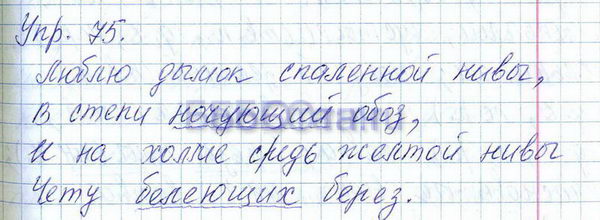 Упр. 75.
Люблю дымок спаленной нивы,
В степи ночующий обоз,
И на холме средь желтой нивы
Чету белеющих берез.